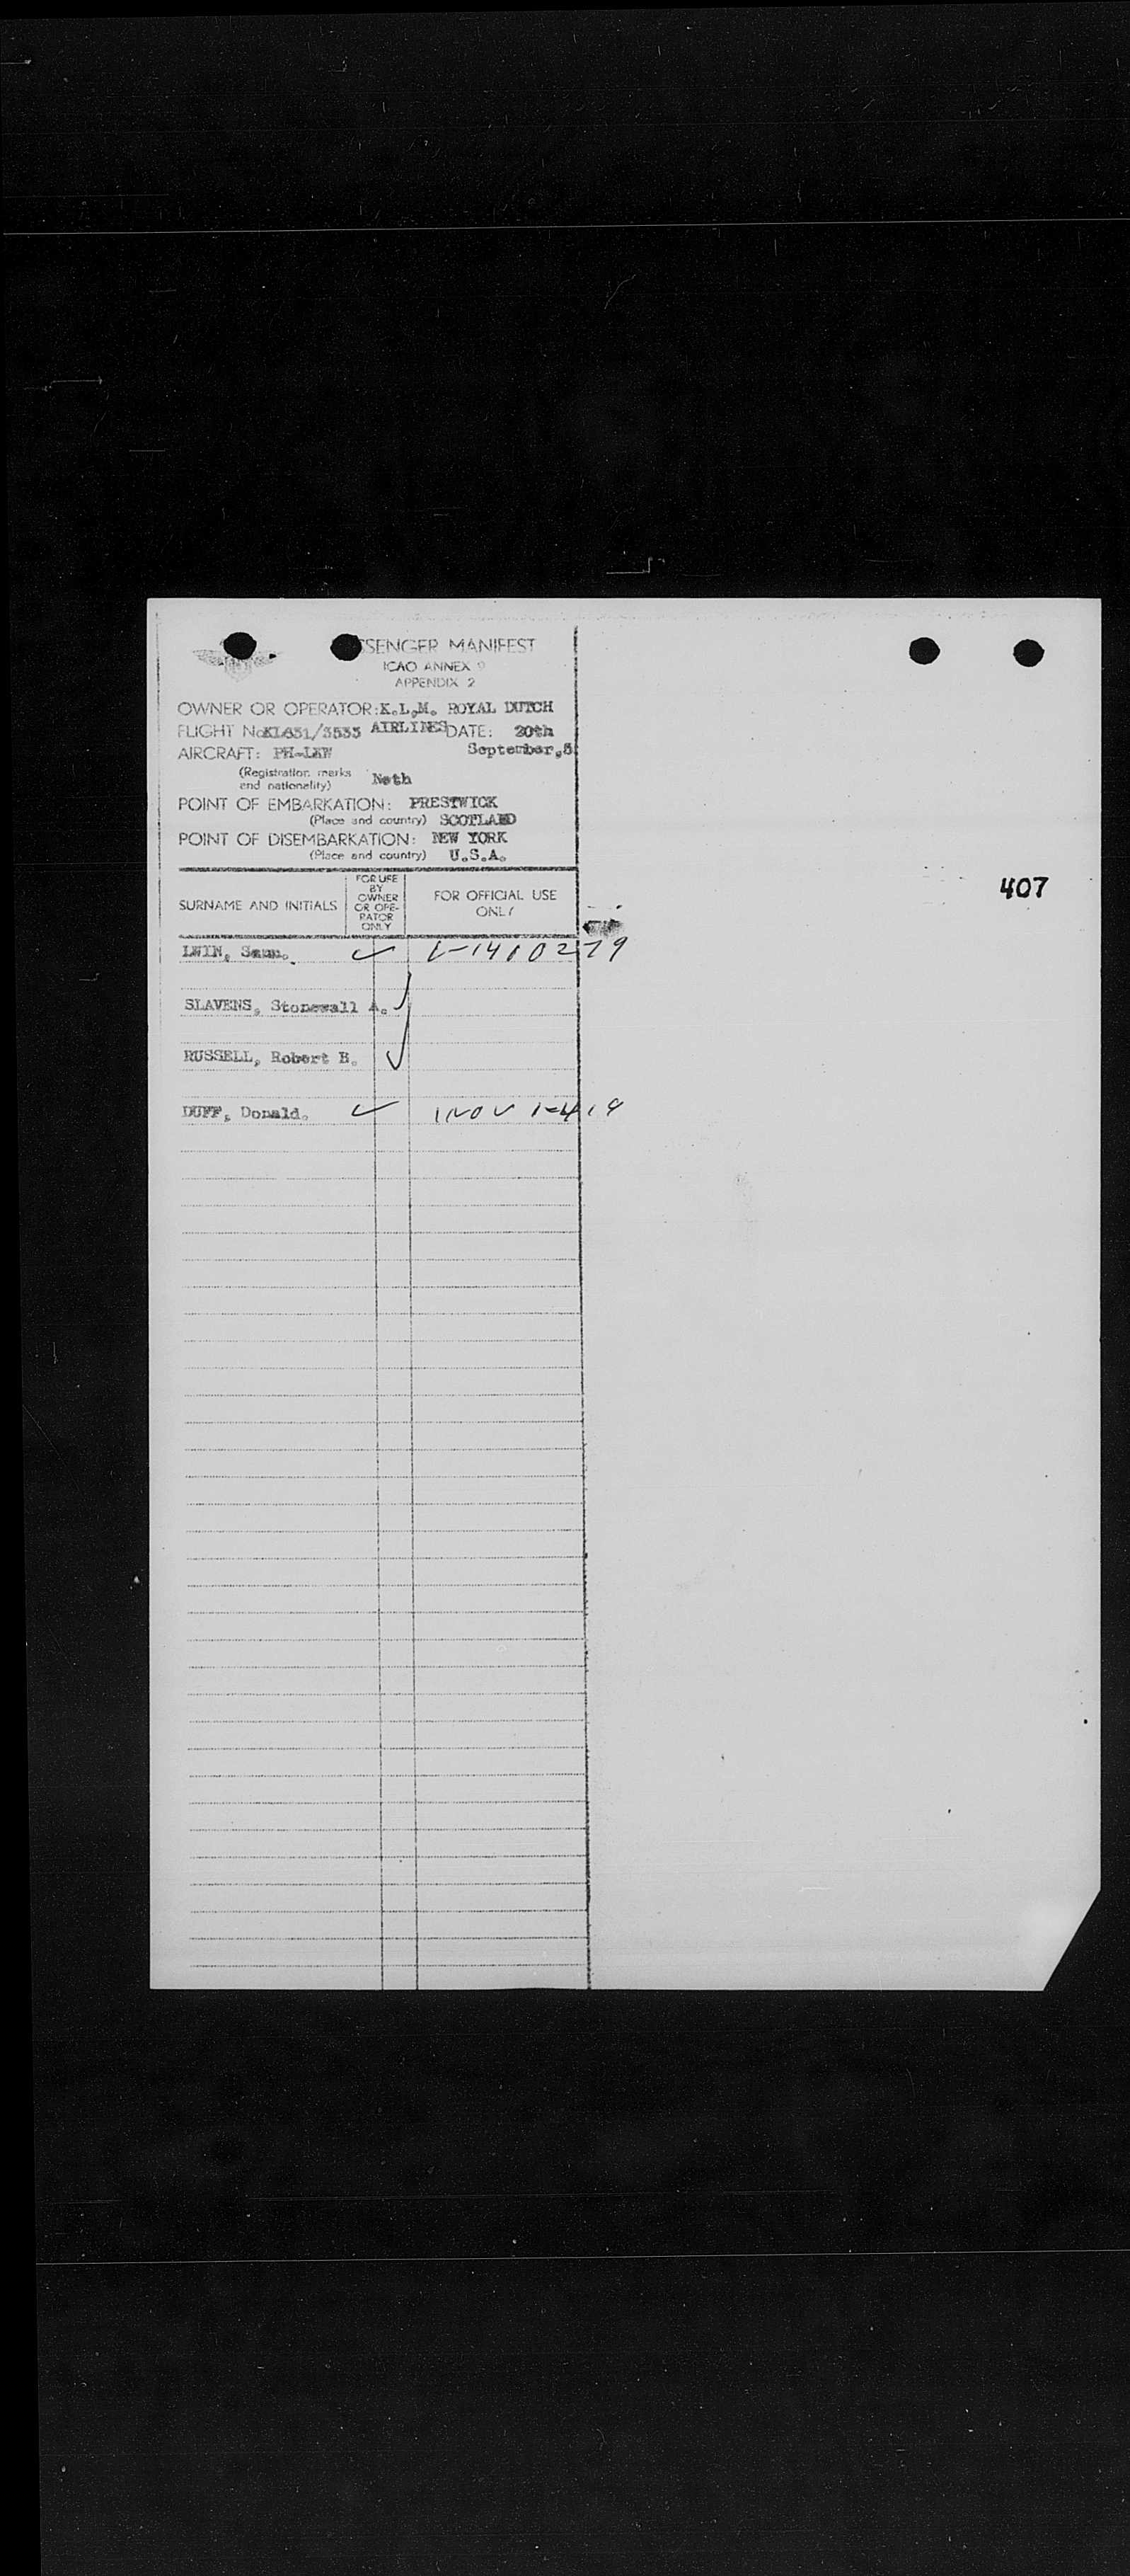 SSENGER MANIFEST
ICAO ANNEX 9
APPENDIX 2
OWNER OR OPERATOR: K.L.M. ROYAL DUTCH
FLIGHT No KL631/3533 AIRLINES DATE: 20th
AIRCRAFT: PH-LKW September,5
(Registration marks
and nationality) Neth
POINT OF EMBARKATION: PRESTWICK
(Place and country) SCOTLAND
POINT OF DISEMBARKATION: NEW YORK
(Place and country) U.S.A.
SURNAME AND INITIALS
FOR USE
BY
OWNER
OR OPE-
RATOR
ONLY
FOR OFFICIAL USE
ONLY
407
LWIN, ✓ V-1410279
SLAVENS, Stonewall A. ✓
RUSSELL, Robert B. ✓
DUFF, Donald. ✓